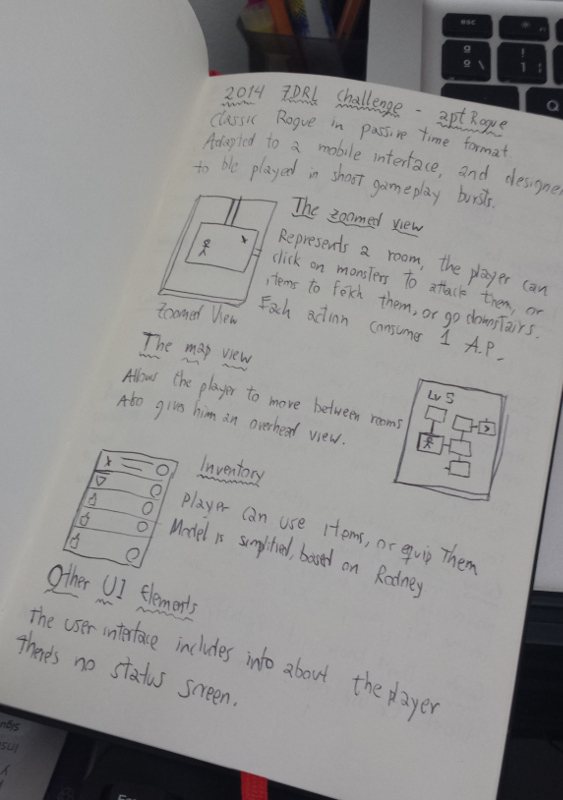 2014 7DRL Challenge - aptRogue
Classic Rogue in passive time format
Adapted to a mobile interface, and designe
to be played in short gameplay bursts.
The zoomed view
Represents a room, the player can
click on monsters to attack them, or
items to fetch them, or go downstairs.
Each action consumes 1 A.P.
Zoomed View
The map view
Allows the player to move between rooms
Also gives him an overhead view.
Lv 5
Inventory
Player can use items, or equip them
Model is simplified, based on Rodney
Other UI Elements
The user interface includes info about the player
there's no status screen.
esc